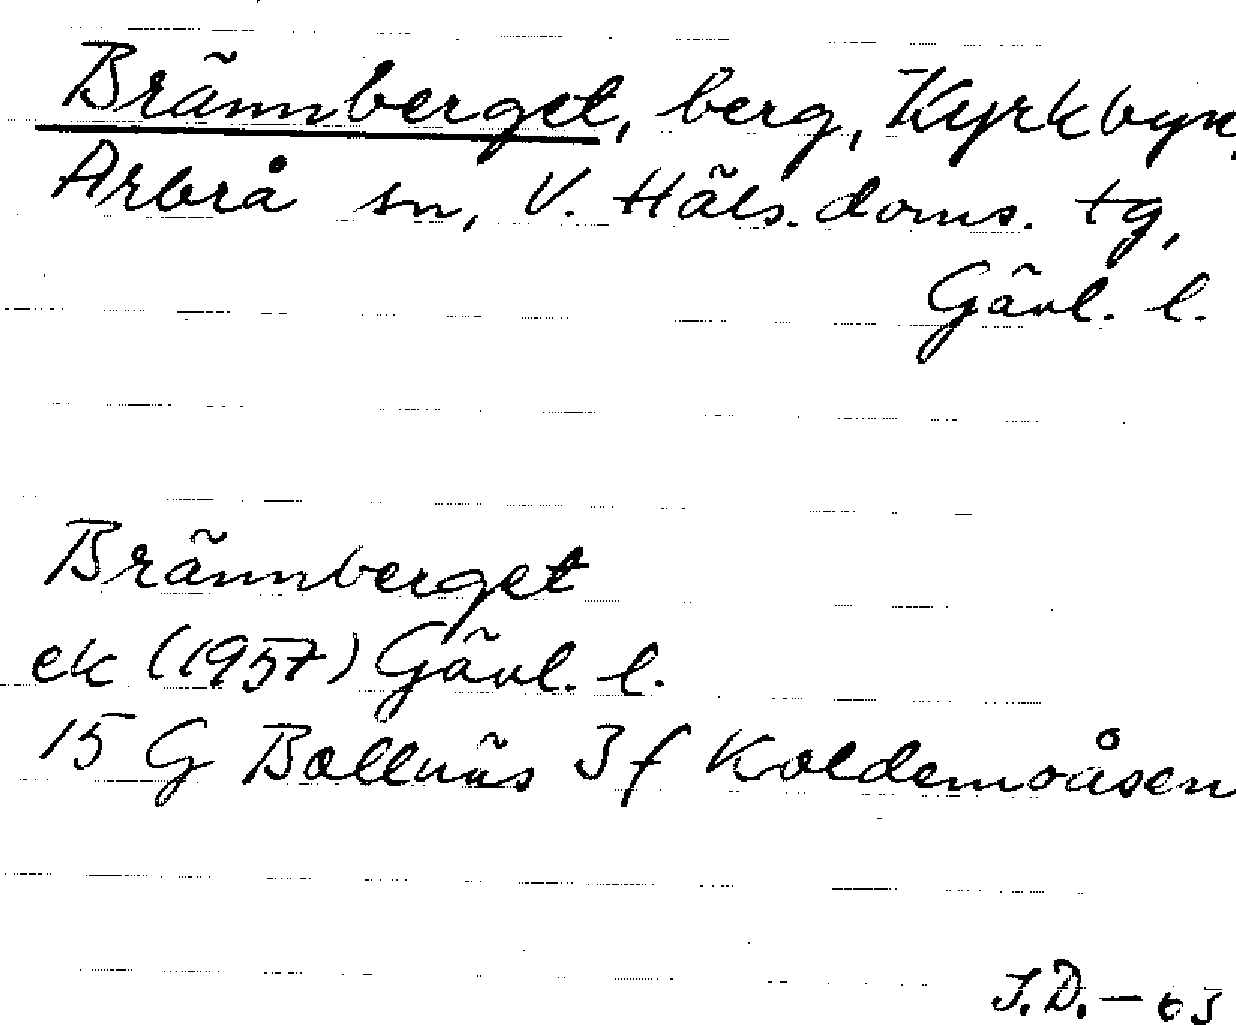 Brännberget, berg, Kyrkbyn,
Arbrå sn, V. Häls. doms. tg,
Gävl. l.
Brännberget
ek (1957) Gävl. l.
15 G Bollnäs 3 f Koldemoåsen
I.D. – 63